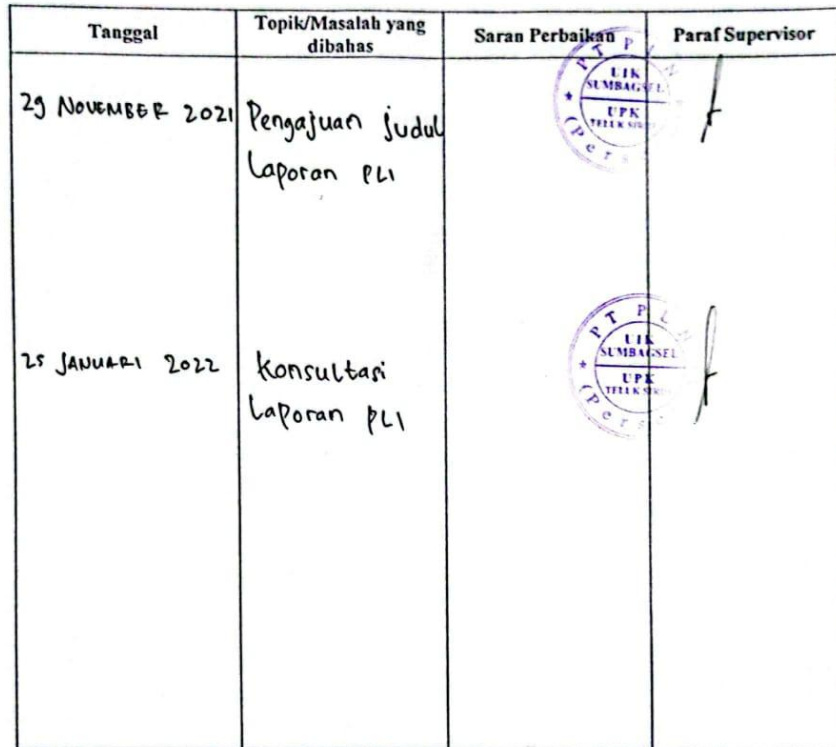 Tanggal
Topik/Masalah yang
dibahas
Saran Perbaikan
Paraf Supervisor
29 NOVEMBER 2021
Pengajuan judul
Laporan PLI
PT PLN
UIK
SUMBAGSEL
UPK
TELUK
(Pers
25 JANUARI 2022
Konsultasi
Laporan PLI
PT PLN
UIK
SUMBAGSEL
UPK
TELUK
(Pers